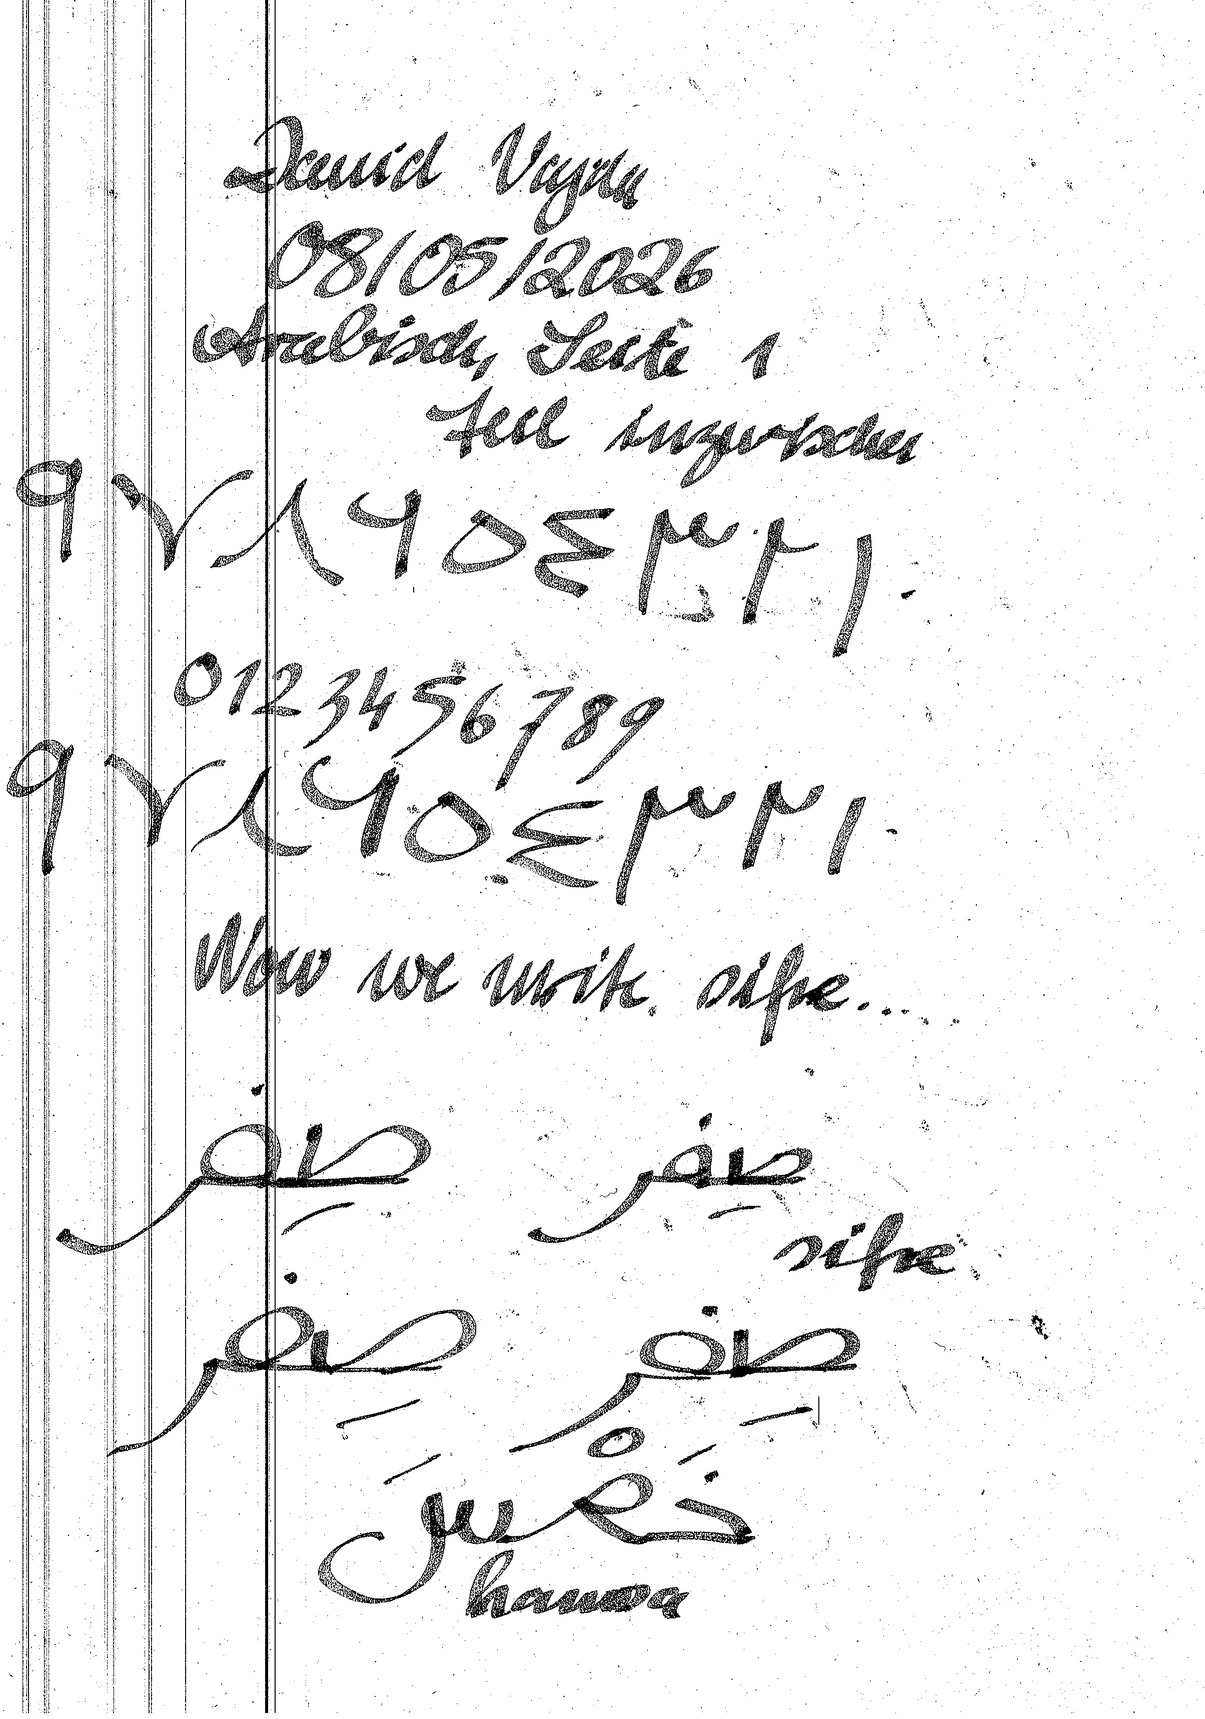 David Vajda
08/05/2026
Arabisch, Seite 1
Teil inzwischen
٩ ٧ ٨ ٦ ٥ ٤ ٣ ٢ ١ ٠
0 1 2 3 4 5 6 7 8 9
٩ ٧ ٨ ٦ ٥ ٤ ٣ ٢ ١ ٠
Now we write. sifre.....
صِفر صِفر
sifre
صِفر صِفر
خَمْسَ
hamsa